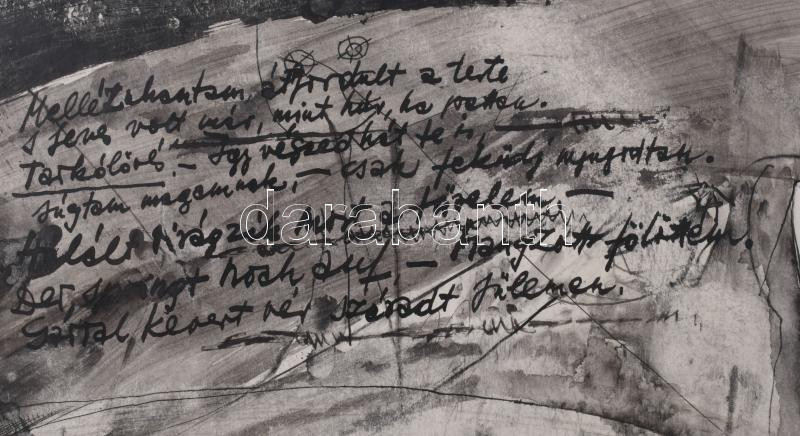 Mellézuhantam, átfordult a teste
s feszes volt már, mint húr, ha pattan.
Tarkólövés. – Így végzed hát te is, –
súgtam magamnak, – csak feküdj nyugodtan.
Halált virágzik most a türelem. –
Der springt noch auf, – hangzott fölöttem.
Sárral kevert vér száradt fülemen.
darabanth.com